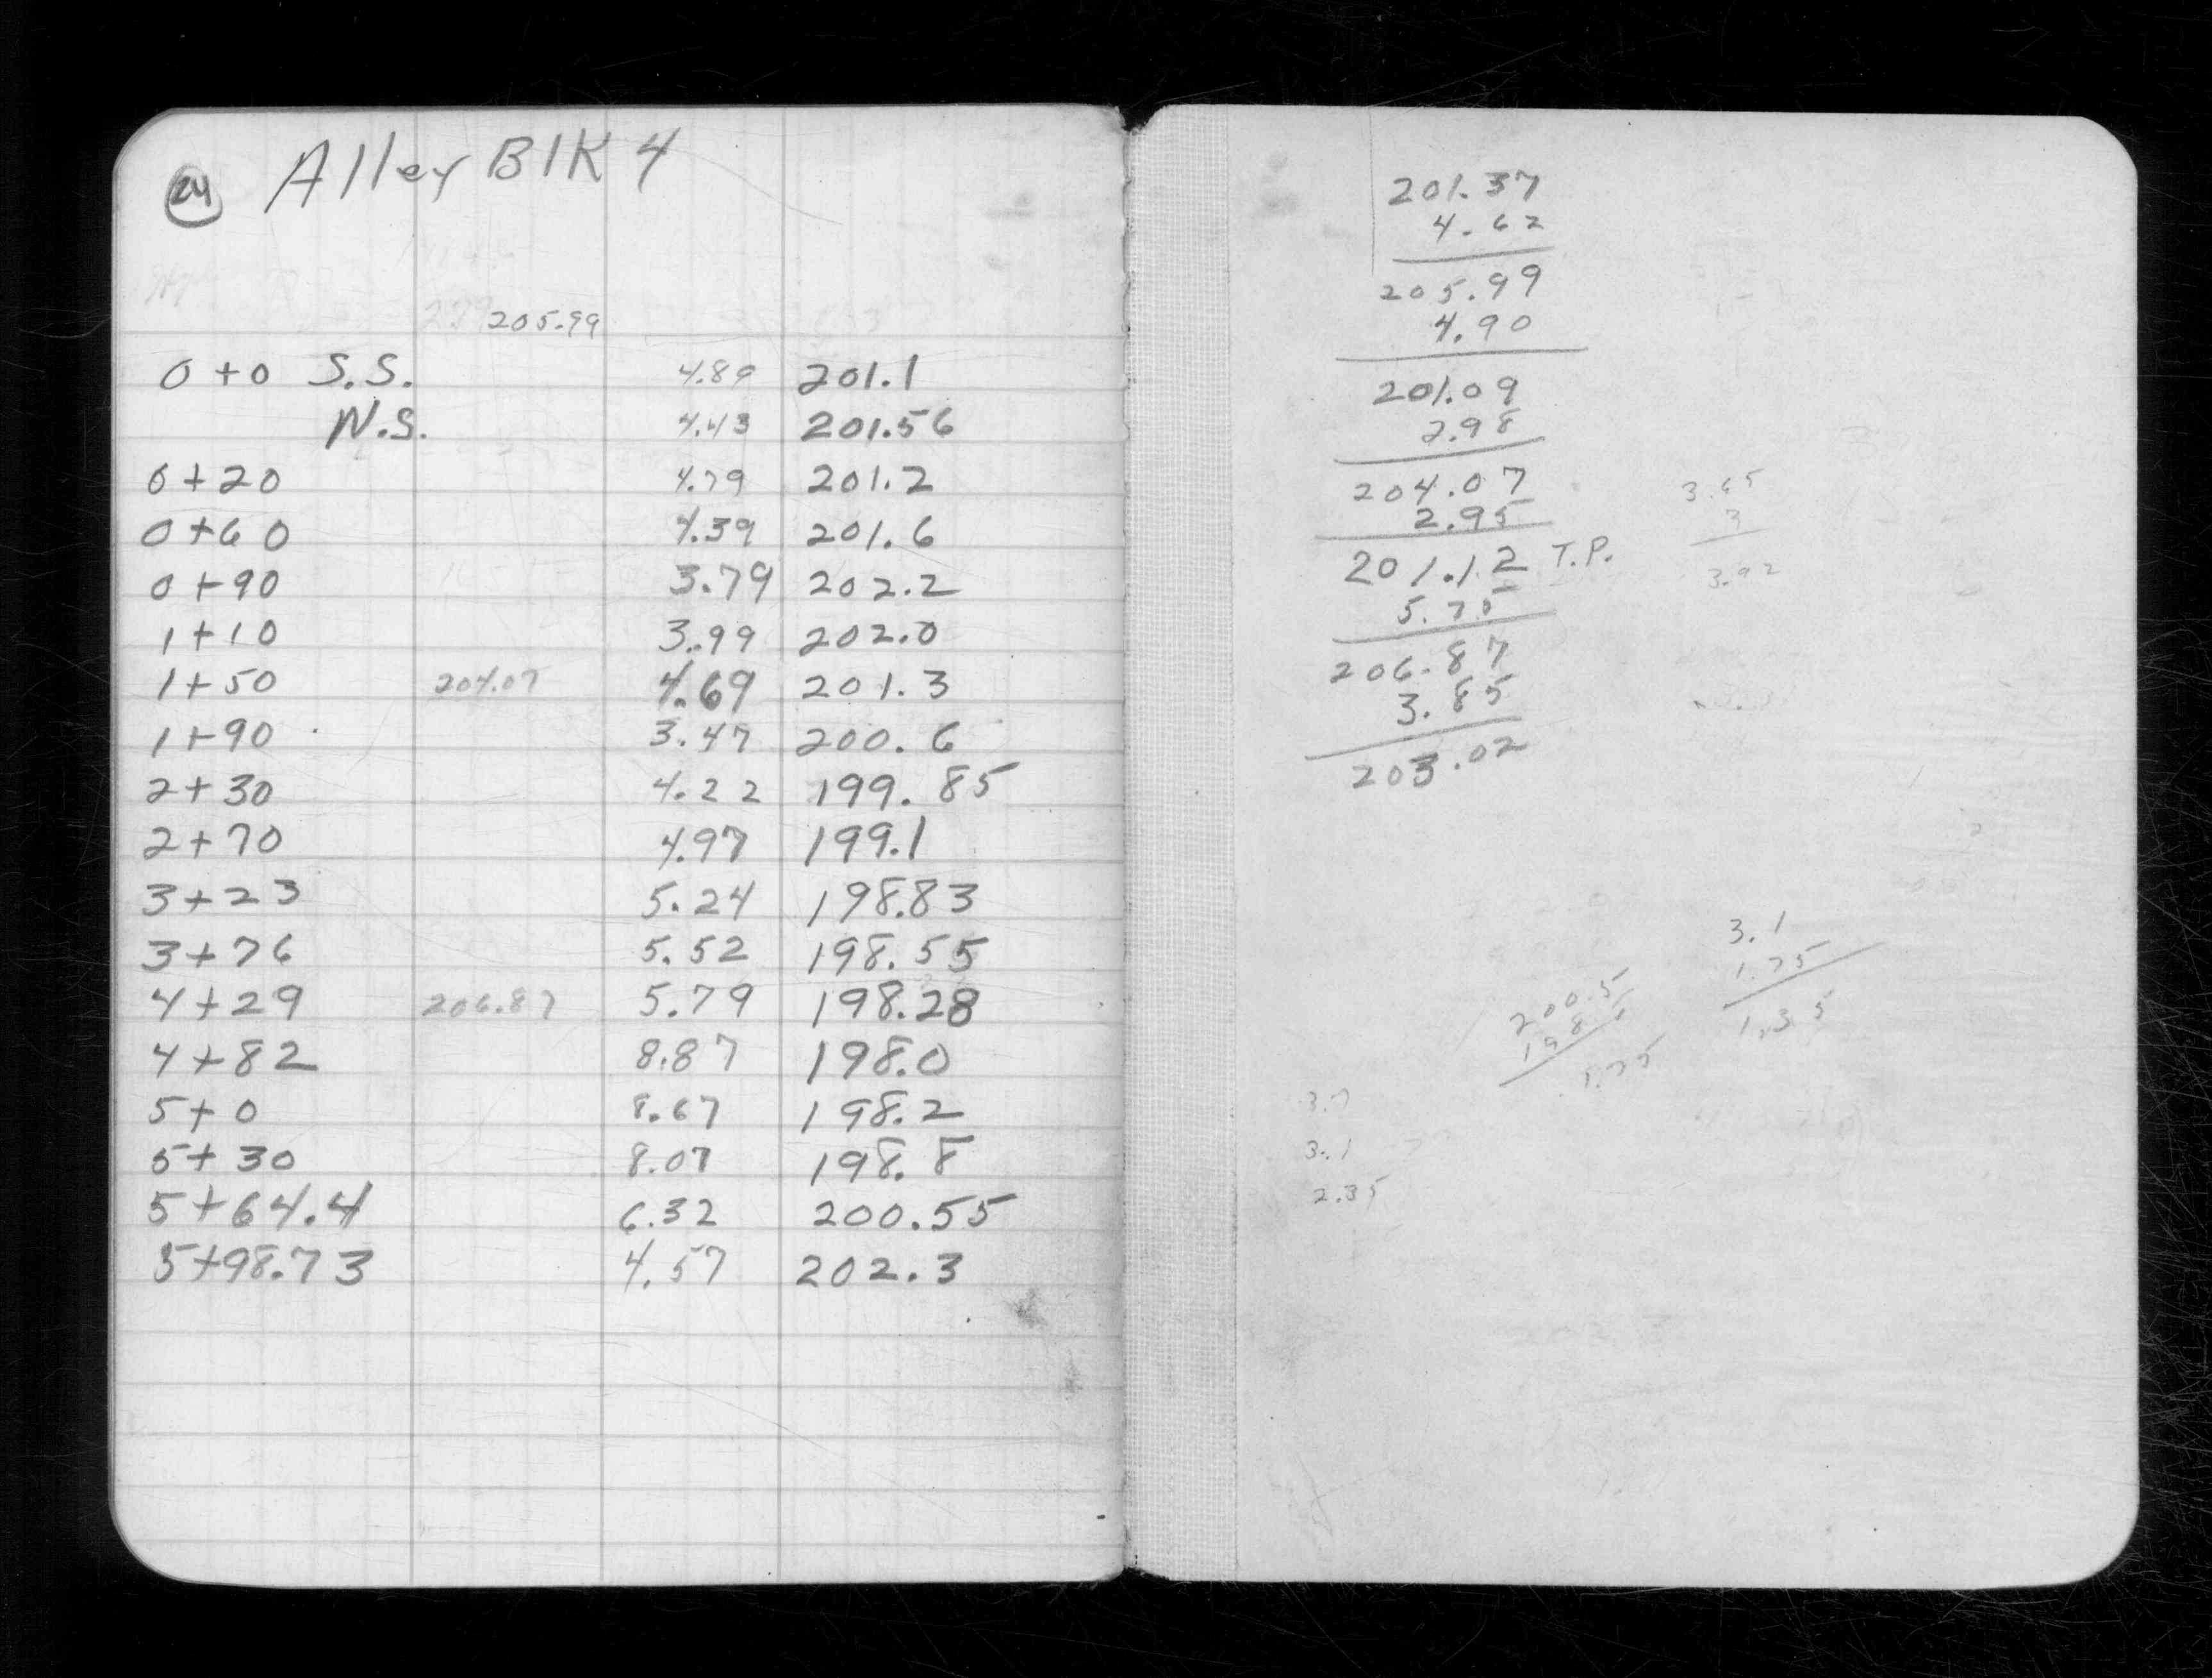 24 Alley Blk 4
205.99
0+0 S.S. 4.89 201.1
N.S. 4.43 201.56
0+20 4.79 201.2
0+60 4.39 201.6
0+90 3.79 202.2
1+10 3.99 202.0
1+50 204.07 4.69 201.3
1+90 3.47 200.6
2+30 4.22 199.85
2+70 4.97 199.1
3+23 5.24 198.83
3+76 5.52 198.55
4+29 206.87 5.79 198.28
4+82 8.87 198.0
5+0 8.67 198.2
5+30 8.07 198.8
5+64.4 6.32 200.55
5+98.73 4.57 202.3
201.37
4.62
205.99
4.90
201.09
2.98
204.07
2.95
201.12 T.P.
5.75
206.87
3.85
203.02
3
3.92
3.1
1.75
1.35
200.5
1.75
3.1
2.35